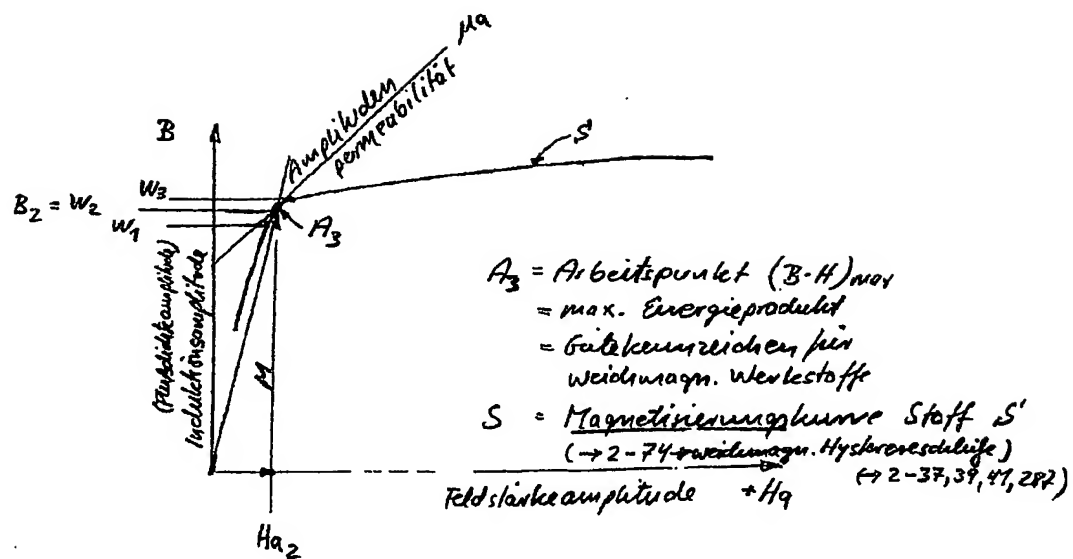 μa
Amplituden
permeabilität
B
S
W3
B2 = W2
W1
A3
(Flußdichteamplitude)
Induktionsamplitude
M
A3 = Arbeitspunkt (B·H)max
= max. Energieprodukt
= Gütekennzeichen für
weichmagn. Werkstoffe
S = Magnetisierungskurve Stoff S
(→ 2-74 weichmagn. Hystereseschleife)
(→ 2-37, 39, 41, 287)
Feldstärkeamplitude +Ha
Ha2